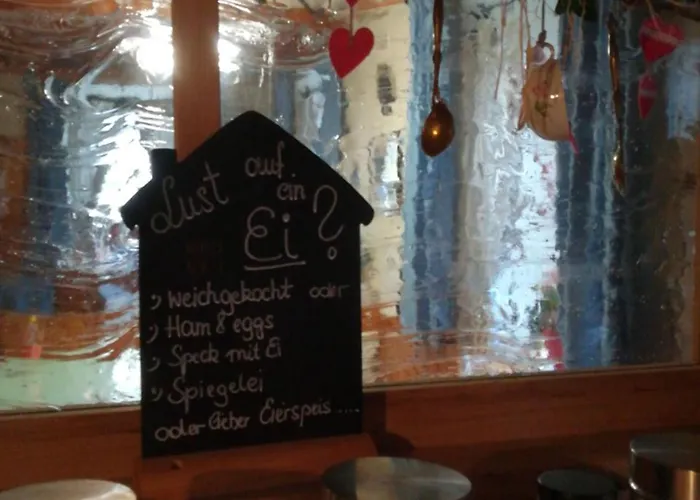 Lust auf
ein
Ei?
weichgekocht oder
Ham & eggs
Speck mit Ei
Spiegelei
oder lieber Eierspeis ....